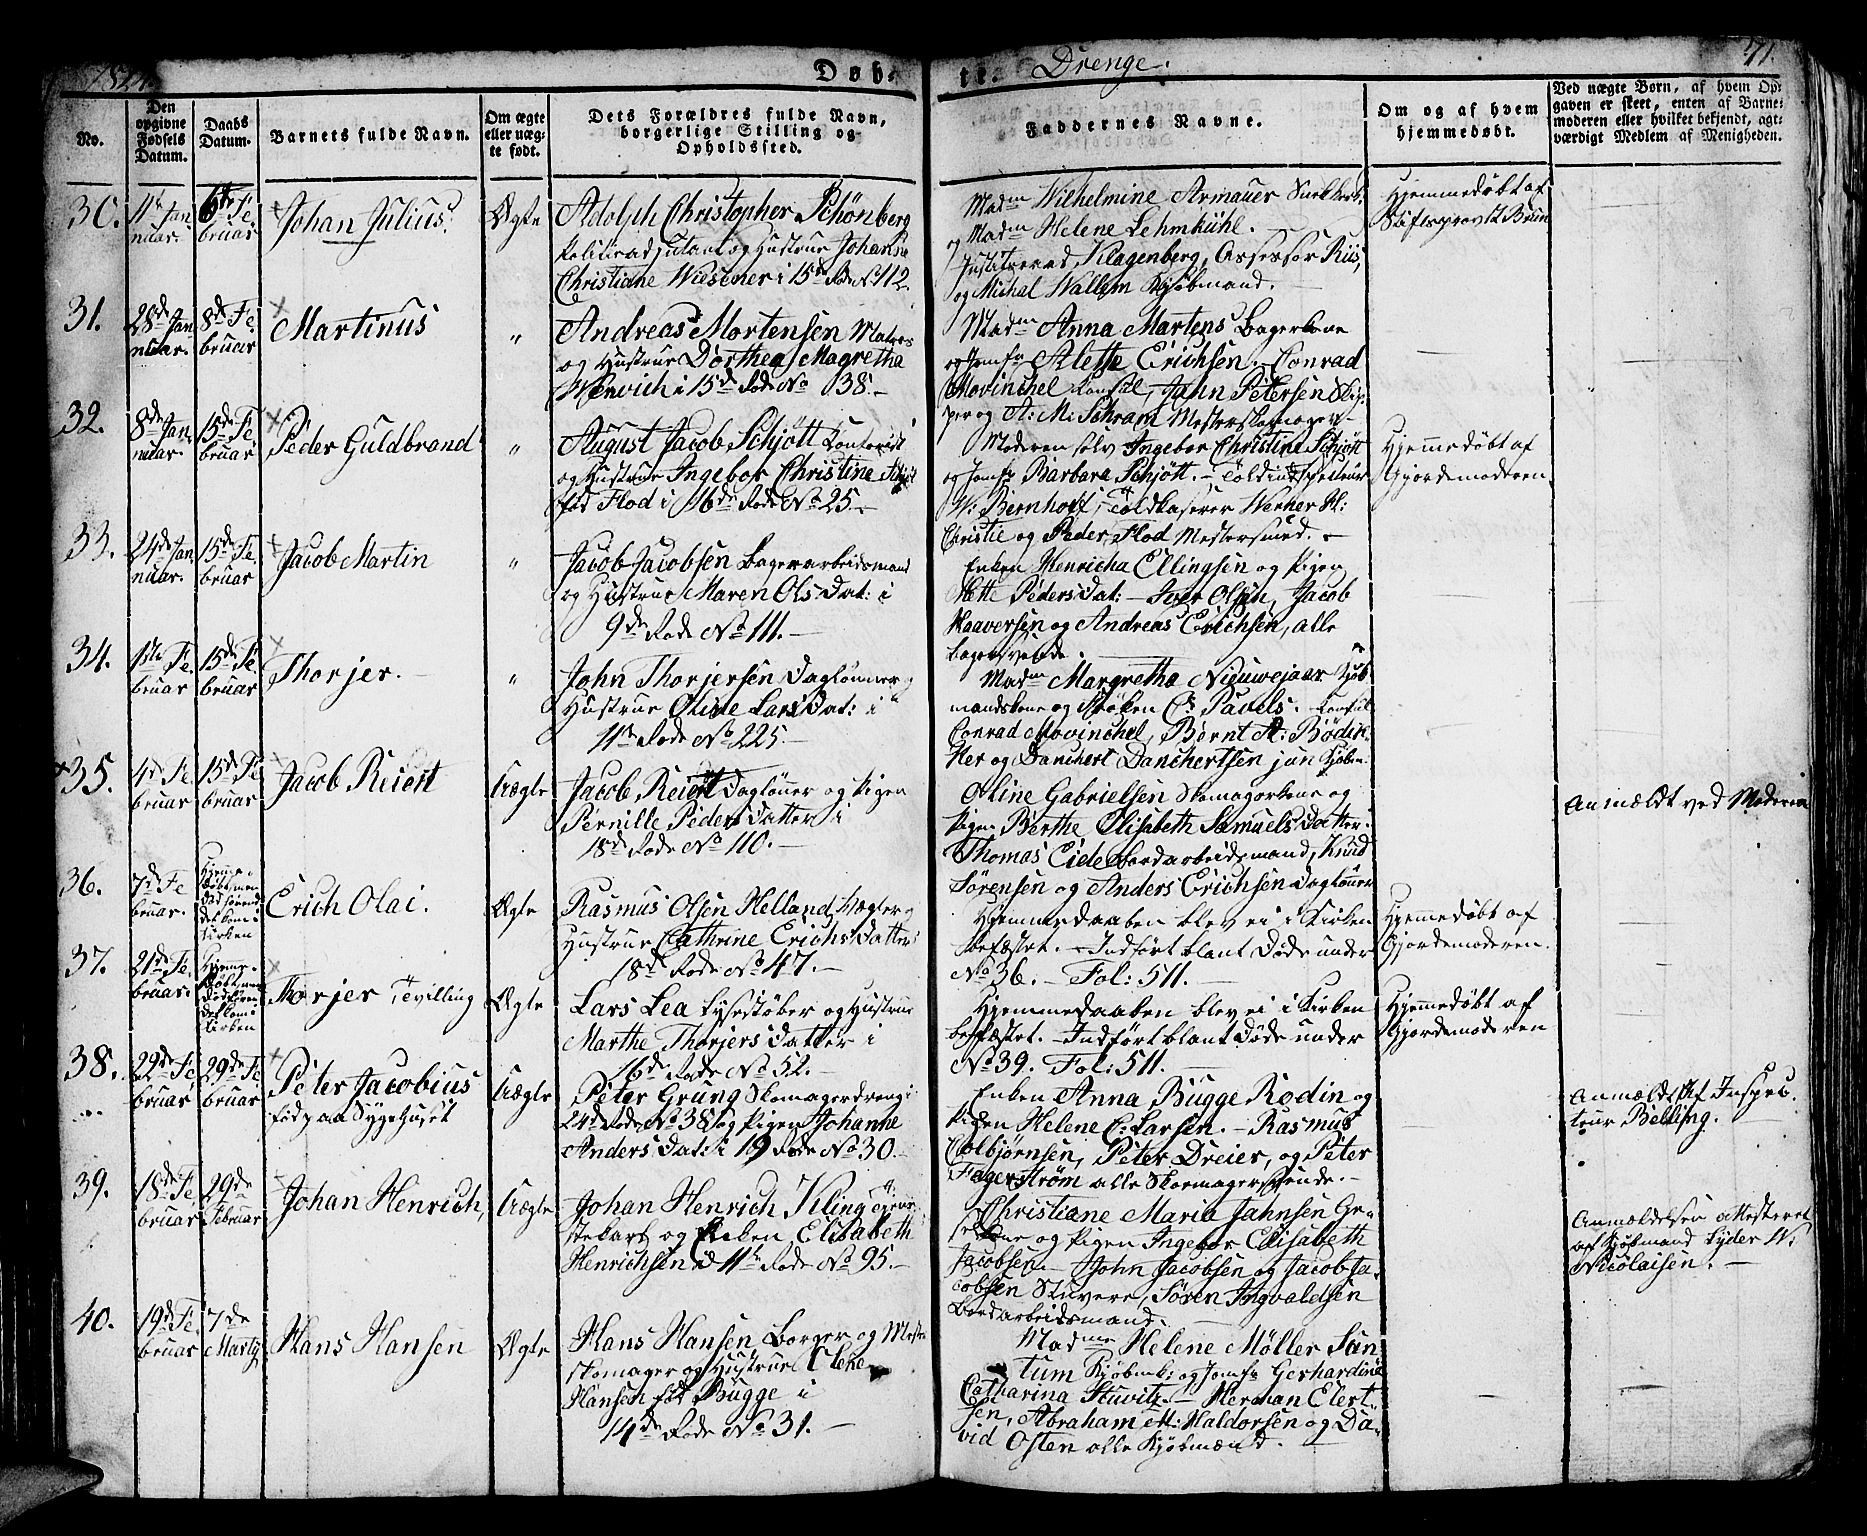 1824.
Døb-
te. Drenge.
71.
No.
Den opgivne Fødsels Datum.
Daabs Datum.
Barnets fulde Navn.
Om ægte eller uæg-te født.
Dets Forældres fulde Navn, borgerlige Stilling og Opholdssted.
Faddernes Navne.
Om og af hvem hjemmedøbt.
Ved uægte Børn, af hvem Op-
gaven er skeet, enten af Barne-
moderen eller hvilket bekjendt, agt-
værdigt Medlem af Menigheden.
30.
11te Jan
nuar.
6te Fe
bruar
Johan Julius.
Ægte
Adolph Christopher Schönberg
og Hustrue Johanne
Christiane Wiesener i 15de Rode No 112.
Madm Wilhelmine Armauer
og Madm Helene Lehmkühl.
Justitsraad Klagenberg, Assessor Riis,
og Michal Wallem Kjøbmand.
Hjemmedøbt af
Stiftsprovst Brun
31.
28de Jan
nuar.
8de Fe
bruar
Martinus
"
Andreas Mortensen Matros
og Hustrue Dorthea Magretha
Wenvich i 15de Rode No 38.
Madm Anna Martens Bagerkone
og Jomfr Alette Erichsen. Conrad
Movinchel Konsul, Jahn Petersen Skip-
per og A: M: Schram Mesterskomager
32.
8de Jan
nuar.
15de Fe
bruar
Peder Guldbrand
"
August Jacob Schjött Kontorist
og Hustrue Ingebor Christine Schjött
fød Flod i 16de Rode No 25.
Moderen selv Ingebor Christine Schjött
og Jomfr Barbara Schjött. Toldinspecteur
W: Bernhoft, Toldkaserer Werner H:
Christie og Peder Flod Mestersmed.
Hjemmedøbt af
Gjordemoderen
33.
24de Jan
nuar.
15de Fe
bruar
Jacob Martin
"
Jacob Jacobsen Bagerarbeidsmand
og Hustrue Maren Ols Dat: i
9de Rode No 111.
Enken Henricha Ellingsen og Pigen
Mette Peders Dat: Iver Olsen, Jacob
Haaversen og Andreas Erichsen, alle
Bagersvende.
34.
1ste Fe
bruar
15de Fe
bruar
Thorjer.
"
John Thorjersen Daglønner og
Hustrue Oline Lars Dat: i
11te Rode No 225.
Madm Margretha Nieuwejaar Kjøb-
mandskone og Frøken C: Pavels. Konsul
Conrad Movinchel, Børnt A: Bødtk-
ker og Danchert Danchertsen jun Kjøbm.
35.
4de Fe
bruar
15de Fe
bruar
Jacob Reiert
Uægte
Jacob Reiert Dagløner og Pigen
Pernille Peders Datter i
18de Rode No 110.
Oline Gabrielsen Skomagerkone og
Pigen Berthe Elisabeth Samuels Datter.
Thomas Eide Bordarbeidsmand, Knud
Sørensen og Anders Erichsen Dagløner
Anmeldt ved Moderen
36.
7de Fe
bruar.
Hjemme-
døbt, men
død førend
det kom i
Kirken
Erich Olai.
Ægte
Rasmus Olsen Helland Vægter og
Hustrue Cathrine Erichs Datter
18de Rode No 47.
Hjemmedaaben blev ei i Kirken
befæstet. Indført blant Døde under
No 36. Fol: 511.
Hjemmedøbt af
Gjordemoderen.
37.
21de Fe
bruar.
Hjemme-
døbt, men
død førend
det kom i
Kirken
Thorjer Tevilling
Ægte
Lars Lea Lysestøber og Hustrue
Marthe Thorjers Datter i
16de Rode No 52.
Hjemmedaaben blev ei i Kirken
befæstet. Indført blant Døde under
No 39. Fol: 511.
Hjemmedøbt af
Gjordemoderen
38.
29de Fe
bruar
29de Fe
bruar
Peter Jacobius
født paa Sygehuset
Uægte
Peter Grung Skomagerdreng i
24de Rode No 38 og Pigen Johanne
Anders Dat: i 19 Rode No 30.
Enken Anna Bugge Rodin og
Pigen Helene C: Larsen. Rasmus
Colbjørnsen, Peter Dreier, og Peter
Fagerstrøm alle Skomagersvende.
Anmeldt af Inspec-
teur Belling.
39.
18de Fe
bruar
29de
Februar
Johan Henrich,
Uægte
Johan Henrich Kling
og Enken Elisabeth
Henrichsen i 11te Rode No 95.
Christiane Maria Jahnsen Ge-
og Pigen Ingebor Elisabeth
Jacobsen. John Jacobsen og Jacob Ja-
cobsen Stuvere, Søren Ingvaldsen
Bordarbeidsmand.
Anmeldelsen attesteret
af Kjøbmand Lyder W:
Nicolaisen.
40.
19de Fe
bruar
7de
Marty
Hans Hansen
Ægte
Hans Hansen Borger og Mester
skomager og Hustrue Elene
Hansen fød Bugge i
14de Rode No 31.
Madme Helene Møller Sun
tum Kjøbmk: og Jomfr Gerhardine
Catharina Stuvitz. Herman Elert-
sen, Abraham M: Haldorsen og Da-
vid Osten alle Kjøbmænd.